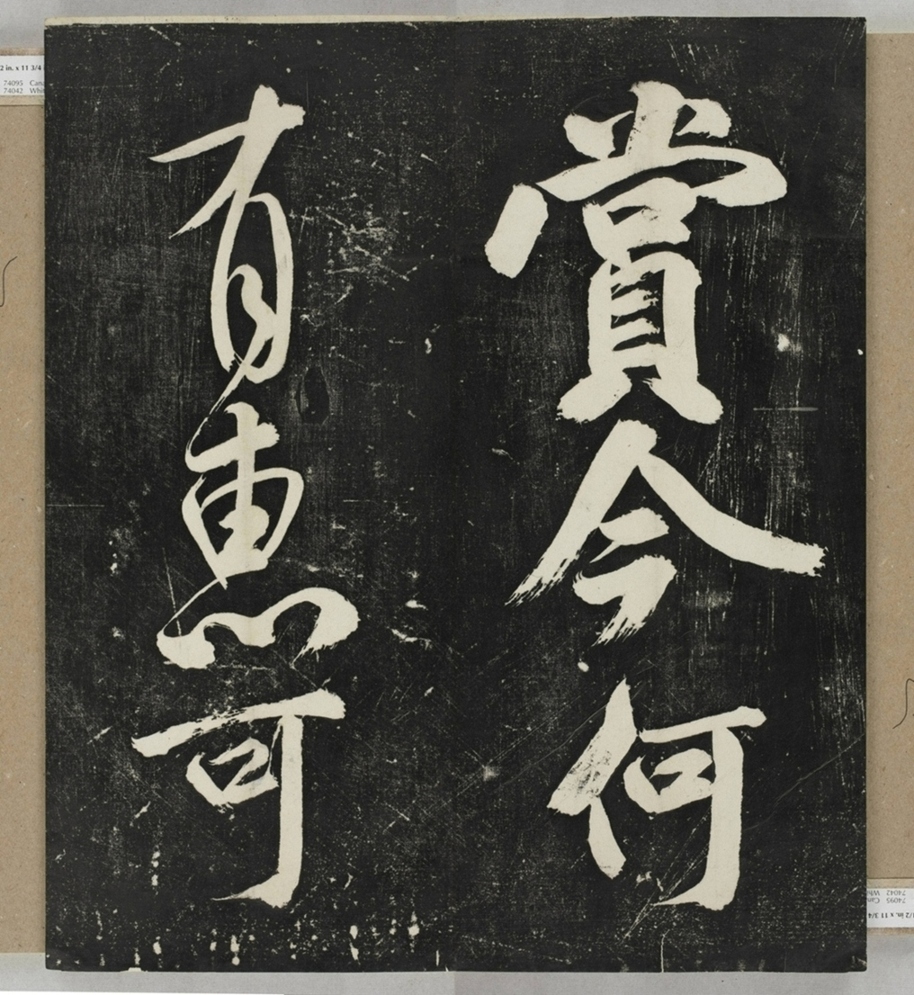 賞今何
有惠可
2 in. x 11 3/4
74095 Can
74042 Whi
74042 Whi
74095 Can
1/2 in. x 11 3/4